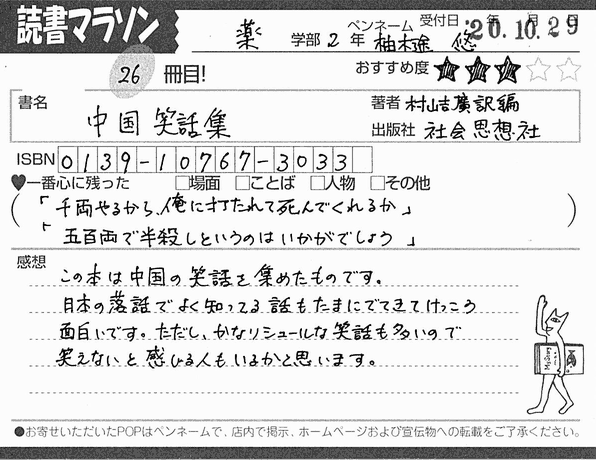 読書マラソン
薬 学部 2 年 ペンネーム 柚木遙 悠 受付日 年 月 日 '20.10.29
26 冊目! おすすめ度 ★★★☆☆
書名 中国笑話集
著者 村山吉廣訳編
出版社 社会思想社
ISBN 0139-10767-3033
♥一番心に残った □場面 □ことば □人物 □その他
(「千両やるから、俺に打たれて死んでくれるか」
「五百両で半殺しというのはいかがでしょう」)
感想
この本は中国の笑話を集めたものです。
日本の落語でよく知ってる話もたまにでてきてけっこう
面白いです。ただし、かなりシュールな笑話も多いので
笑えないと感じる人もいるかと思います。
●お寄せいただいたPOPはペンネームで、店内で掲示、ホームページおよび宣伝物への転載をご了承ください。